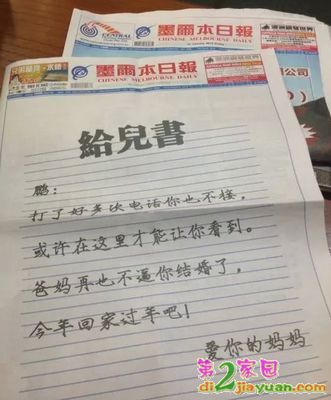 CENTRAL
墨爾本日報
CHINESE MELBOURNE DAILY
墨爾本日報
CHINESE MELBOURNE DAILY
公司
給兒書
鹏：
打了好多次电话你也不接，
或许在这里才能让你看到。
爸妈再也不逼你结婚了，
今年回家过年吧！
爱你的妈妈
第2家园
di2jiayuan.com